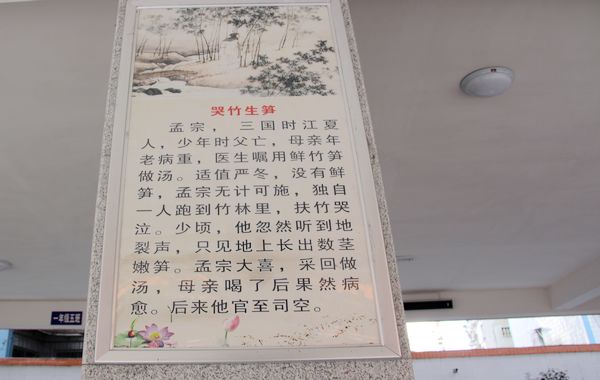 哭竹生笋
孟宗，三国时江夏
人，少年时父亡，母亲年
老病重，医生嘱用鲜竹笋
做汤。适值严冬，没有鲜
笋，孟宗无计可施，独自
一人跑到竹林里，扶竹哭
泣。少顷，他忽然听到地
裂声，只见地上长出数茎
嫩笋。孟宗大喜，采回做
汤，母亲喝了后果然病
愈。后来他官至司空。
一年级五班